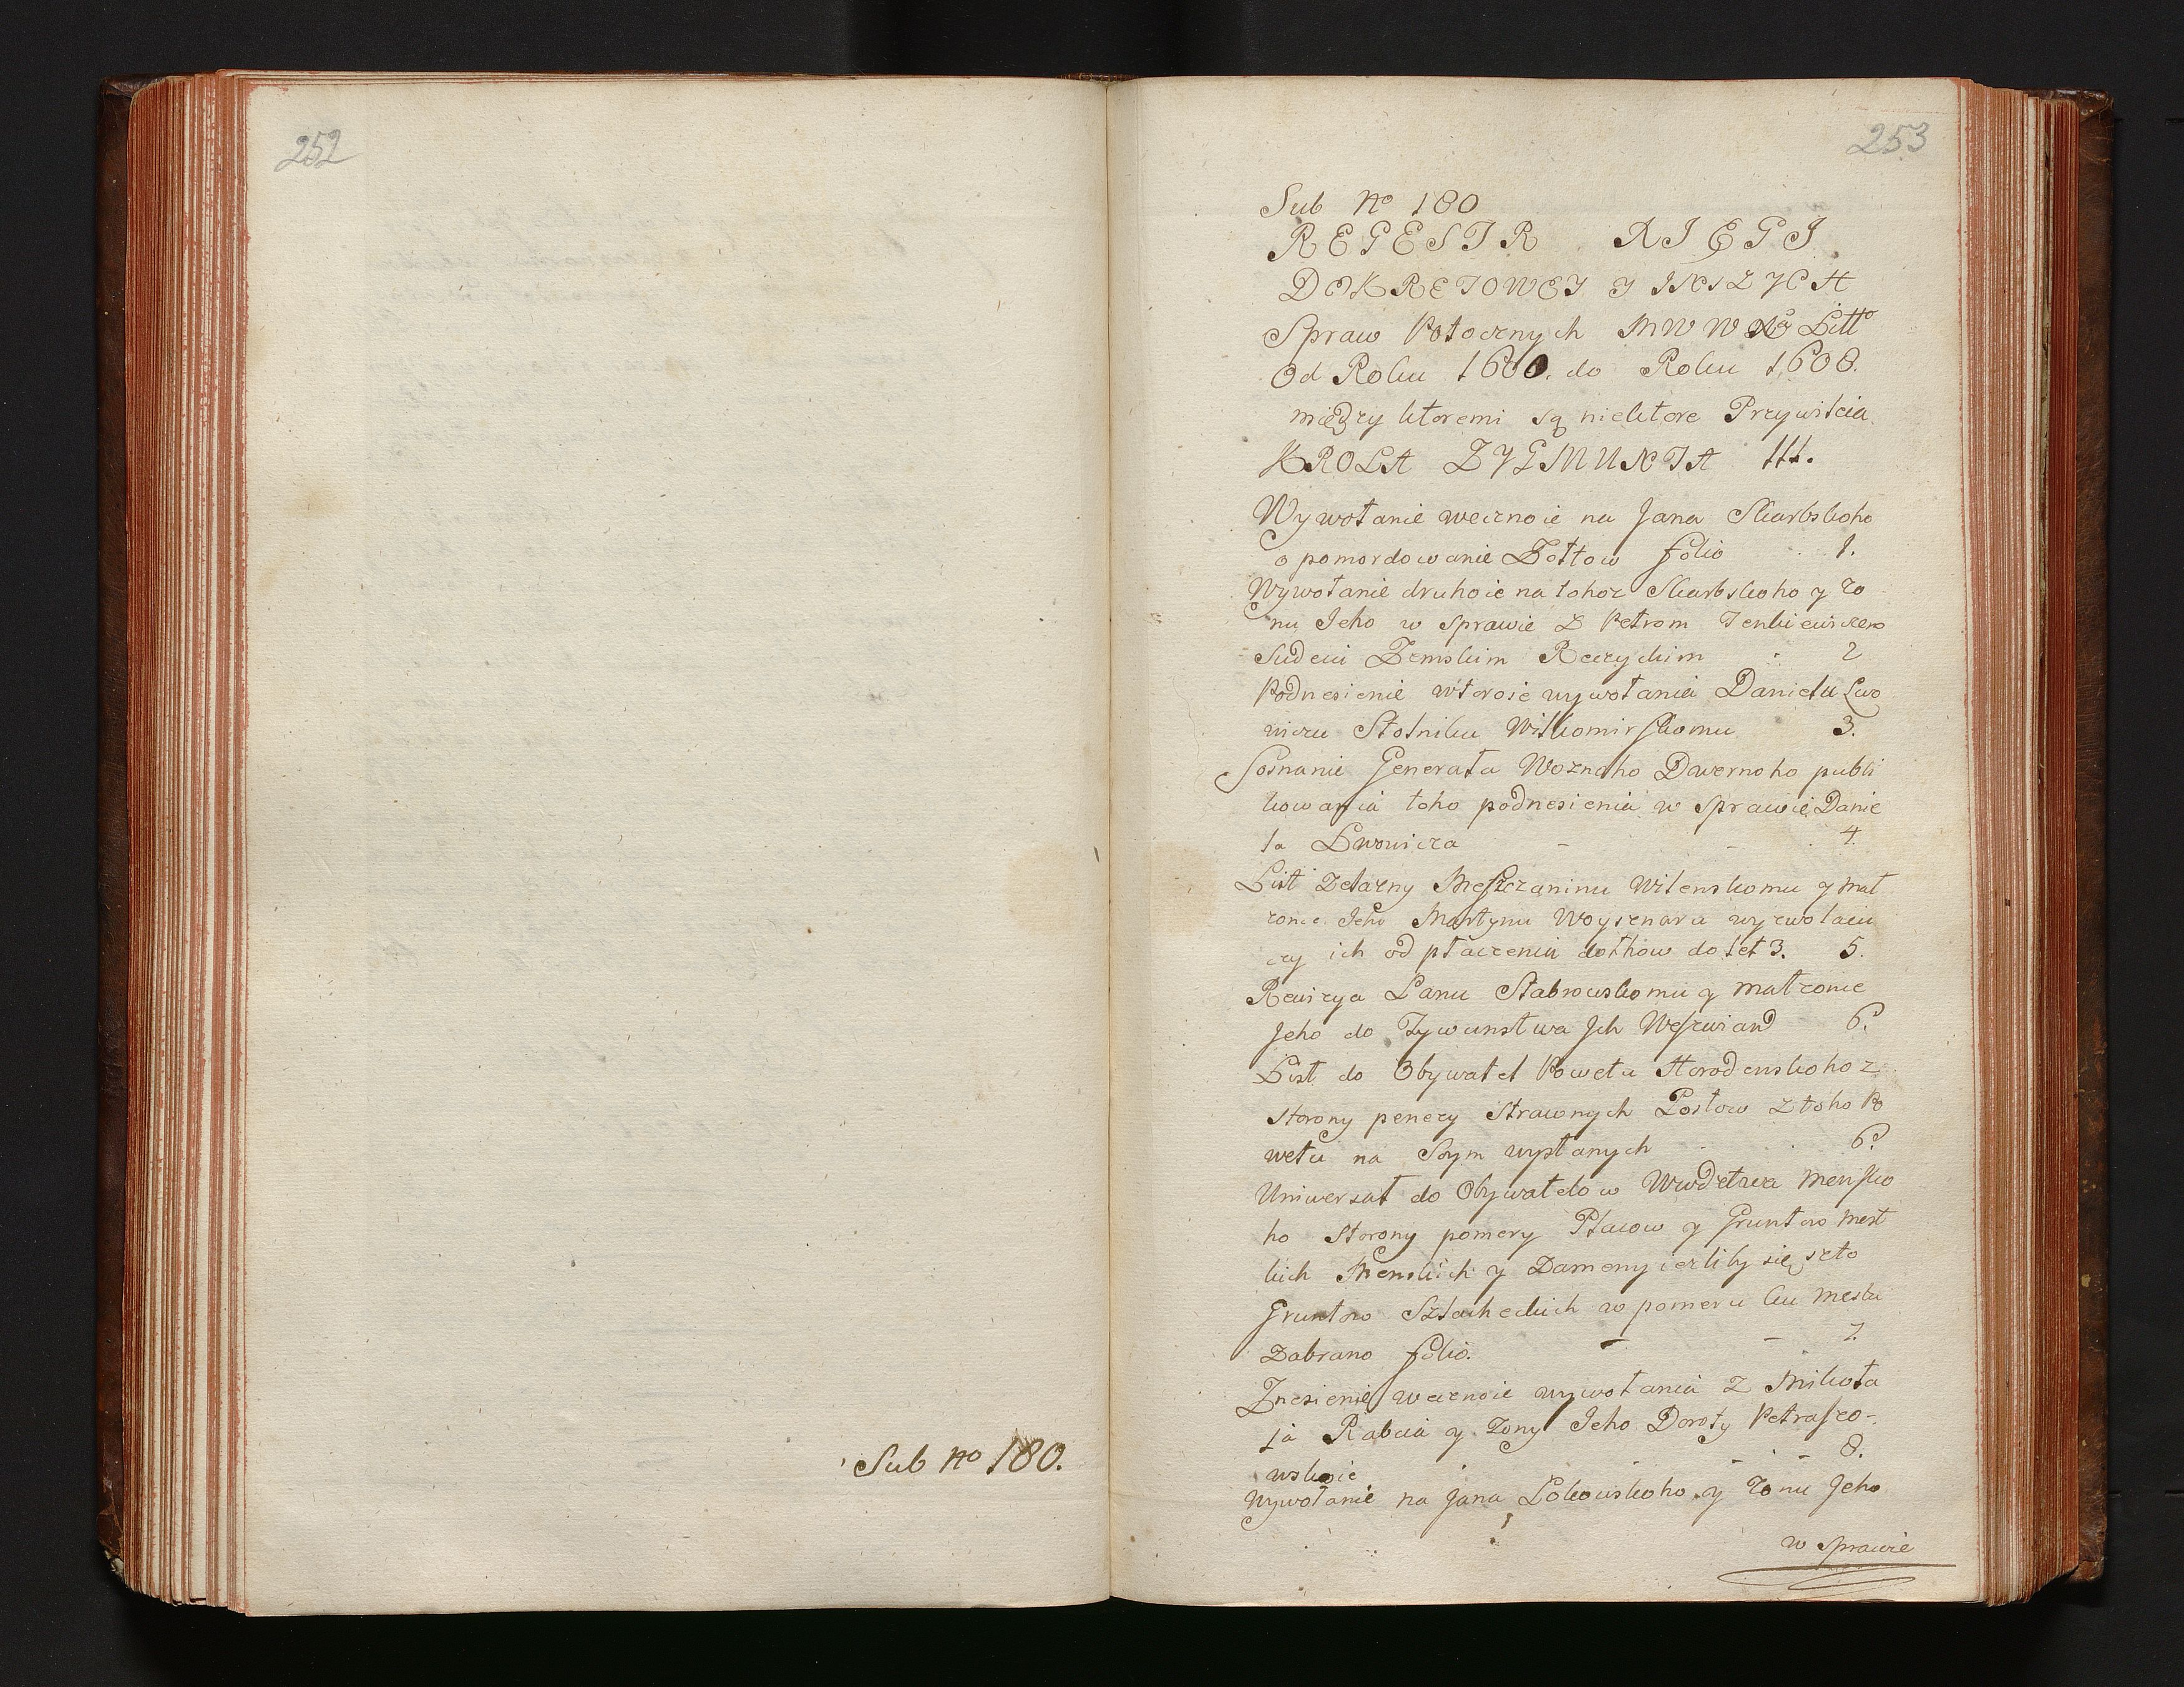 252
Sub No 180.
253
Sub No 180
REGESTR KIĘGI
DEKRETOWEY Y INSZYCH
Spraw Potocznych MWWXo Litto
Od Roku 1600. do Roku 1608.
między ktoremi są niektore Przywileia
KROLA ZYGMUNTA III.
Wywołanie wecznoie na Jana Skarbskoho
o pomordowanie Żołtow folio 1.
Wywołanie druhoie na tohoż Skarbskoho y żo
nu Jeho w sprawie z Petrom
Sudeiu Zemskim Reczyckim 2
Podnesienie wtoroie wywołania Danielu Lwo
wiczu Stolniku Wilkomirskomu 3.
Soznanie Generała Woznoho Dwornoho publi
kowania toho podnesienia w sprawie Danie
la Lwowicza - - 4.
List Żelazny Meszczaninu Wilenskomu y mał
zonce Jeho Martynu Woysznara wyzwolaiu
czy ich od płaczenia dołhow do let 3. 5.
Rewizya Panu Stabrowskomu y małzonce
Jeho do Żywunstwa Ich Weszwian 6.
List do Obywatel Poweta Horodenskoho z
storony penezy strawnych Posłow z toho Po
wetu na Soym wysłanych 6.
Uniwersał do Obywatelow Wwdztwa Mensko
ho storony pomery Płacow y Gruntow mest
kich Menskich y Zameny iezliby się szto
Gruntow Szlacheckich w pomeru ku mestu
Zabrano folio. - - 7.
Zniesienie wecznoie wywołania z Mikoła
ia Rabcia y Żony Jeho Doroty Petraszo-
wskoie - - - 8.
Wywołanie na Jana Lokowskoho y żonu Jeho
w sprawie